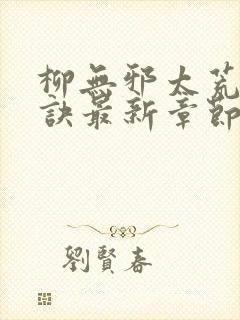 柳無邪太荒
訣最新章節
劉賢春